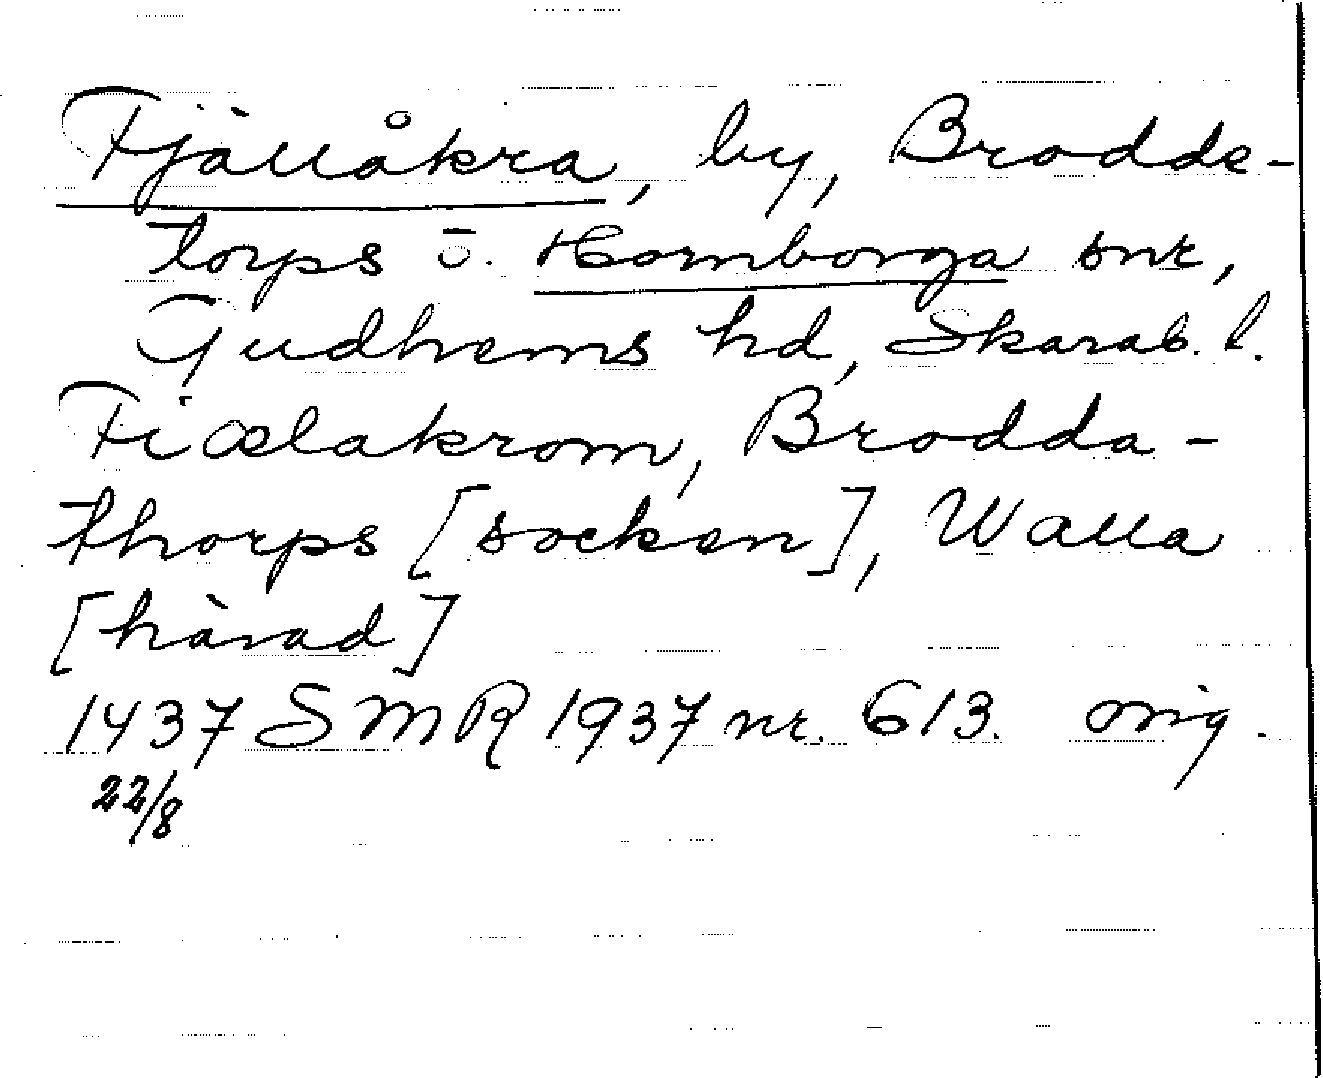 Fjällåkra, by, Brodde-
torps o. Hornborga snr,
Gudhems hd, Skarab. l.
Fiælakrom, Brodda-
thorps [socken], Walla
[härad]
1437 SMR 1937 nr. 613. orig.
22/8